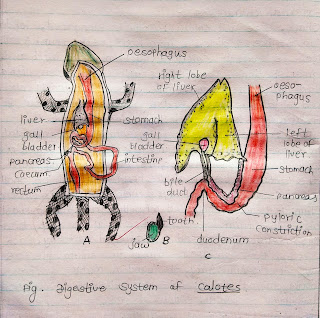 oesophagus
right lobe
of liver
oeso-
phagus
liver
gall
bladder
pancreas
caecum
rectum
stomach
gall
bladder
intestine
left
lobe of
liver
stomach
bile
duct
pancreas
tooth
pyloric
constriction
A
jaw
B
duodenum
C
Fig. Digestive System of Calotes